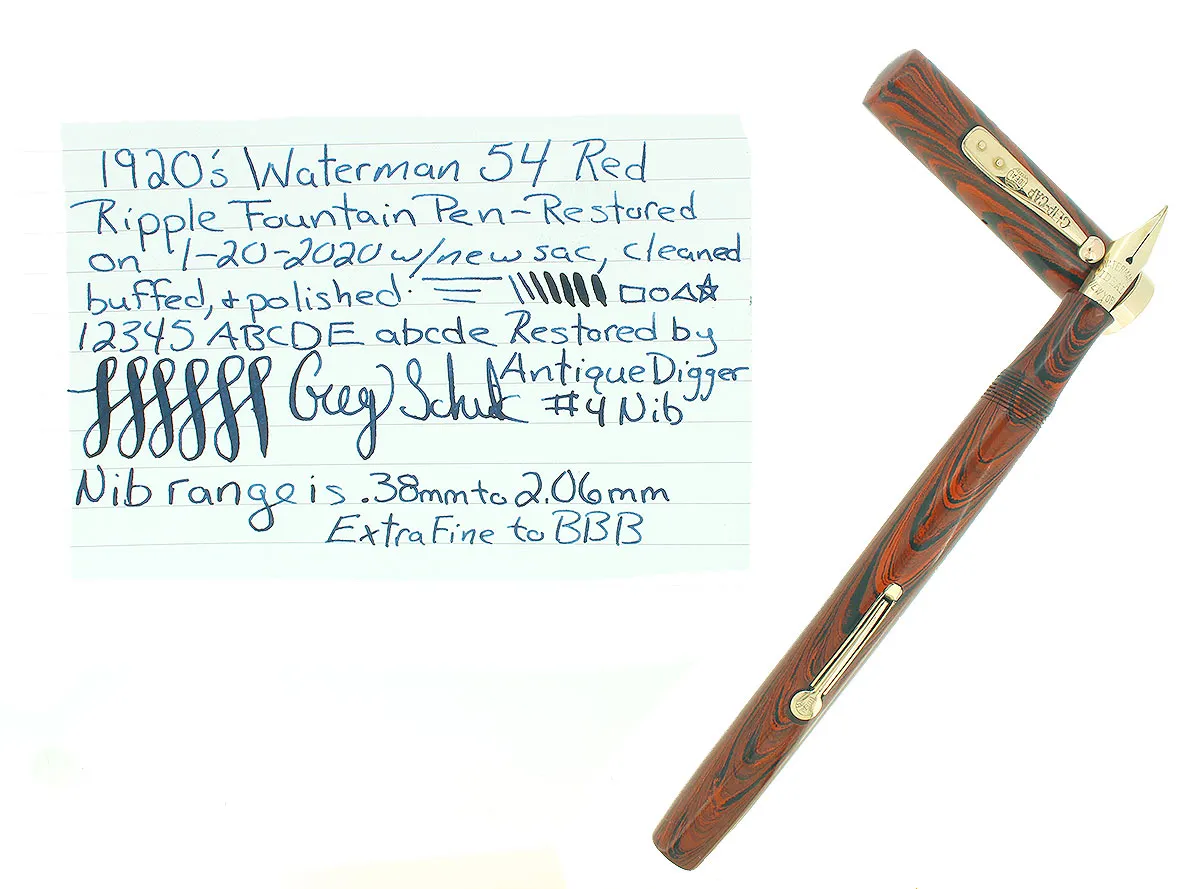 1920's Waterman 54 Red
Ripple Fountain Pen-Restored
on 1-20-2020 w/new sac, cleaned
buffed, + polished.
12345 ABCDE abcde Restored by
Greg AntiqueDigger
#4 Nib
Nib range is .38mm to 2.06mm
Extra Fine to BBB
CLIP-CAP